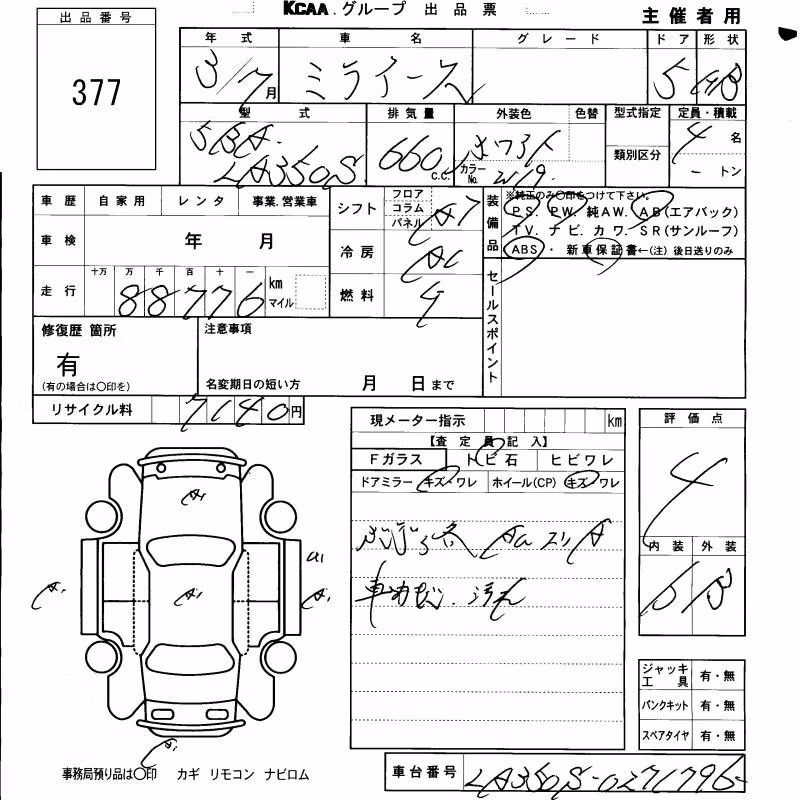 KCAA.グループ 出品票
主催者用
出品番号
377
年式 車名 グレード ドア 形状
3/7月 ミライース 5 HB
型式 排気量 外装色 色替 型式指定 定員・積載
5BA-LA350S 660c.c. カラーNo. W19 類別区分 4名
-トン
車歴 自家用 レンタ 事業.営業車 シフト フロア コラム パネル A7
車検 年 月 冷房 AC
走行 十万 万 千 百 十 一 km マイル 燃料
88776
装備品 ※純正のみ〇印をつけて下さい。
PS. PW. 純AW. AB(エアバック)
TV. ナビ. カワ. SR(サンルーフ)
ABS・新車保証書←(注)後日送りのみ
セールスポイント
修復歴 箇所
有
(有の場合は〇印を)
注意事項
名変期日の短い方 月 日まで
リサイクル料 7140円
現メーター指示 km
【査定員記入】
Fガラス トビ石 ヒビワレ
ドアミラー キズ・ワレ ホイール(CP) キズ・ワレ
評価点
4
内装 外装
B
A1
A1
U1
A1
A1
A1
ジャッキ工具 有・無
パンクキット 有・無
スペアタイヤ 有・無
事務局預り品は〇印 カギ リモコン ナビロム
車台番号 LA350S-0271796-